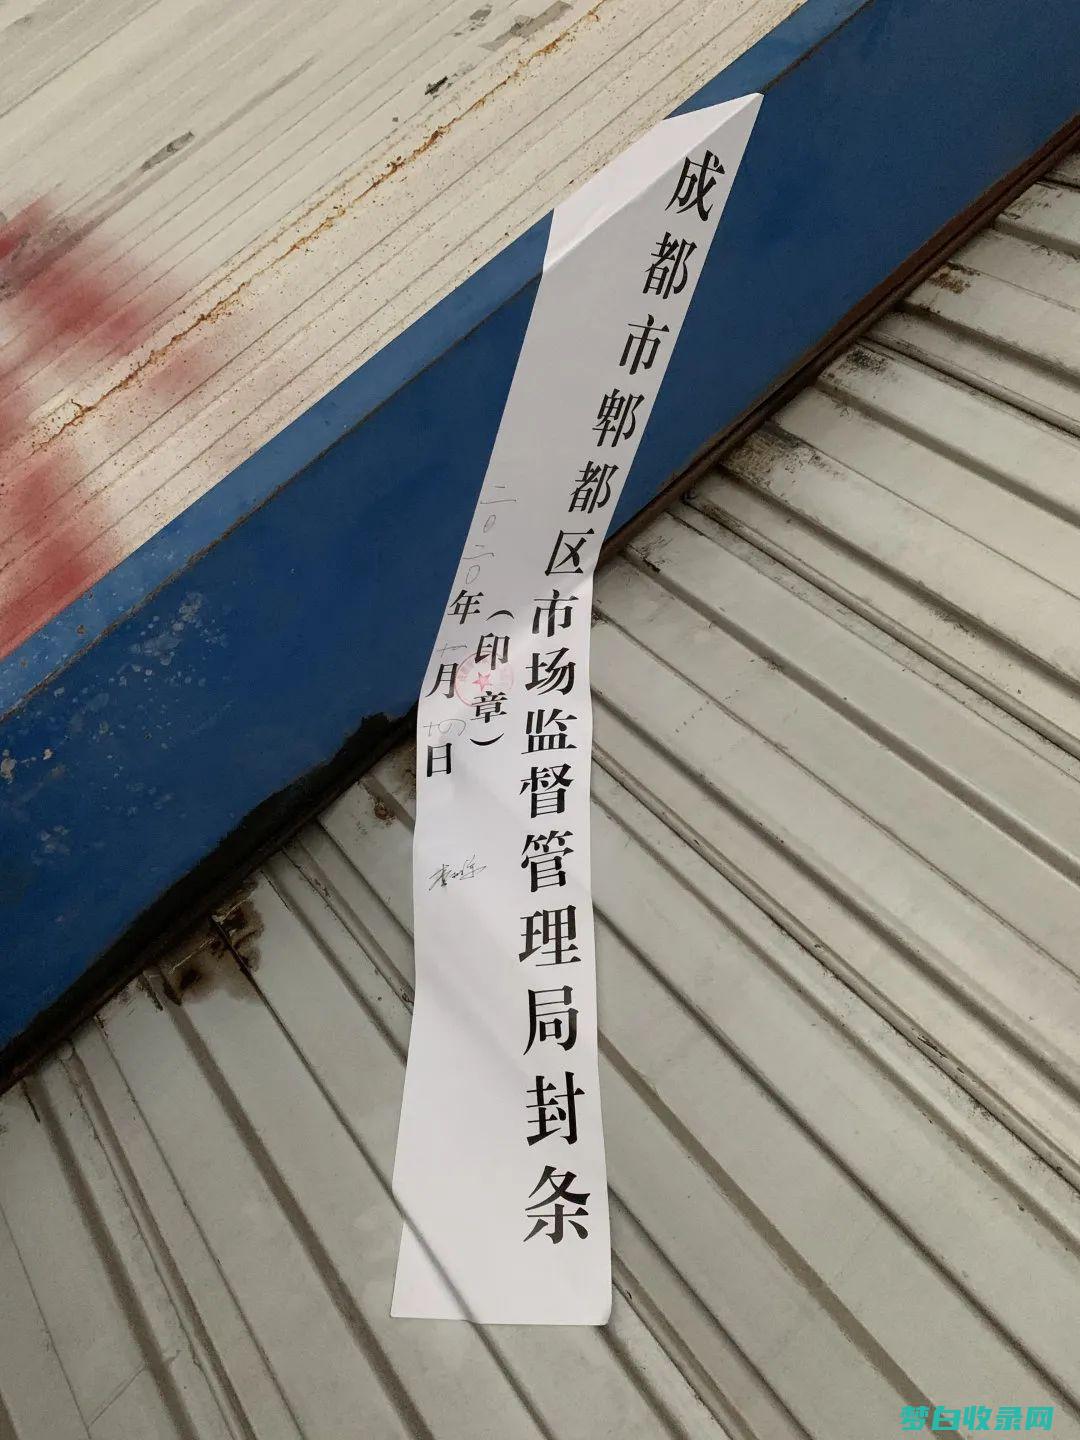 成都市郫都区市场监督管理局封条
（印章）
二0二0年十月十四日
梦白收录网